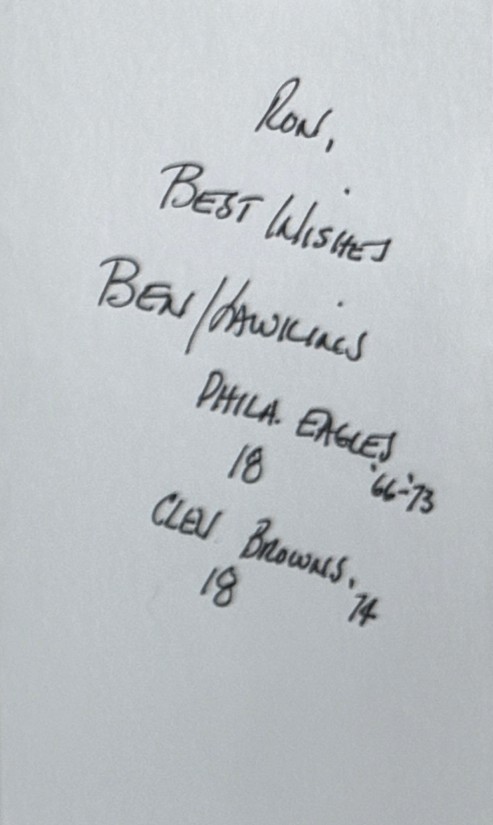 RON,
BEST WISHES
BEN HAWKINS
PHILA. EAGLES
18 '66-'73
CLEV BROWNS,
18 74